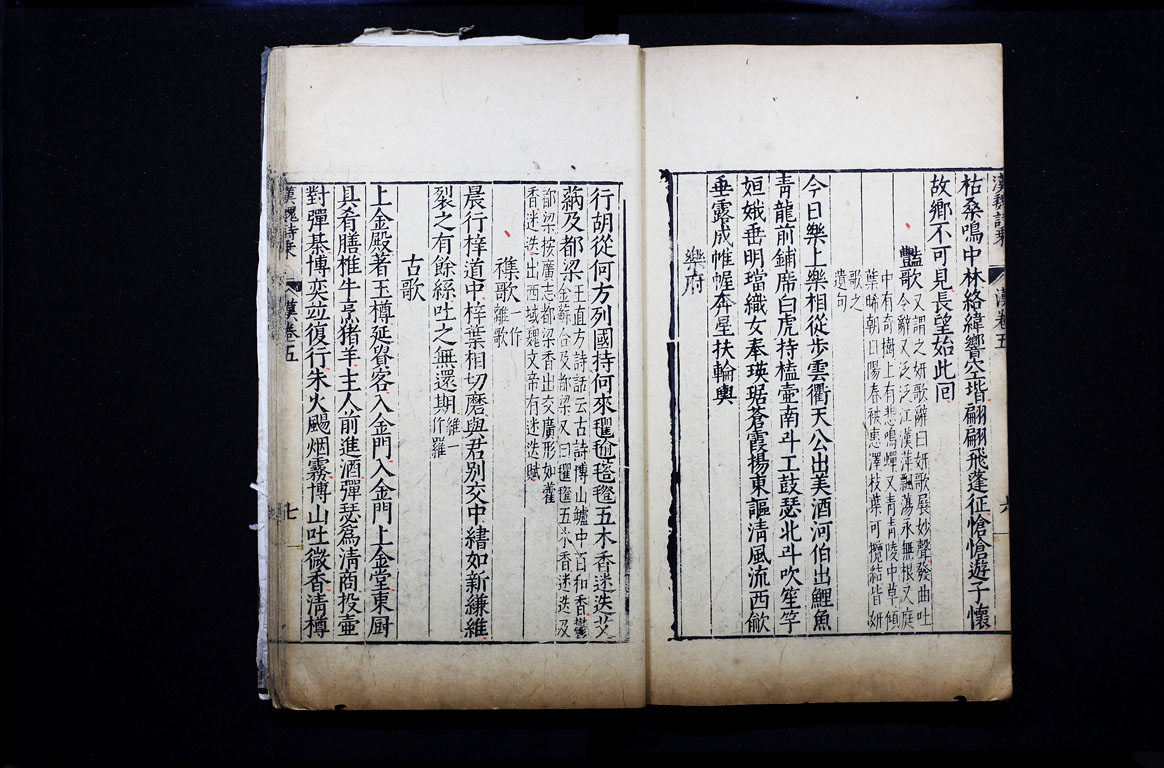 漢魏詩乘
漢卷五
六
枯桑鳴中林絡緯響空堦翩翩飛蓬征愴愴遊子懷
故鄉不可見長望始此回
豔歌
又謂之妍歌辭曰妍歌展妙聲發曲吐
今辭又泛泛江漢萍飄蕩永無根又庭
中有奇樹上有悲鳴蟬又青青陵中草傾
葉晞朝日陽春被惠澤枝葉可攬結皆妍
歌之
遺句
今日樂上樂相從步雲衢天公出美酒河伯出鯉魚
青龍前鋪席白虎持榼壷南斗工鼓瑟北斗吹笙竽
姮娥垂明璫織女奉瑛琚蒼霞揚東謳清風流西歈
垂露成帷幄奔星扶輪輿
樂府
行胡從何方列國持何來氍毹㲪𣰆五木香迷迭艾
蒳及都梁
王直方詩話云古詩博山罏中百和香鬱
金蘇合及都梁又曰氍㲪五木香迷迭及
都梁按廣志都梁香出交廣形如藿
香迷迭出西域魏文帝有迷迭賦
襍歌
一作
離歌
晨行梓道中梓葉相切磨與君別交中繣如新縑維
裂之有餘絲吐之無還期
維一
作羅
古歌
上金殿著玉樽延貴客入金門入金門上金堂東厨
具肴膳椎牛烹猪羊主人前進酒彈瑟爲清商投壷
對彈棊博奕竝復行朱火颺烟霧博山吐微香清樽
漢魏詩乘
漢卷五
七